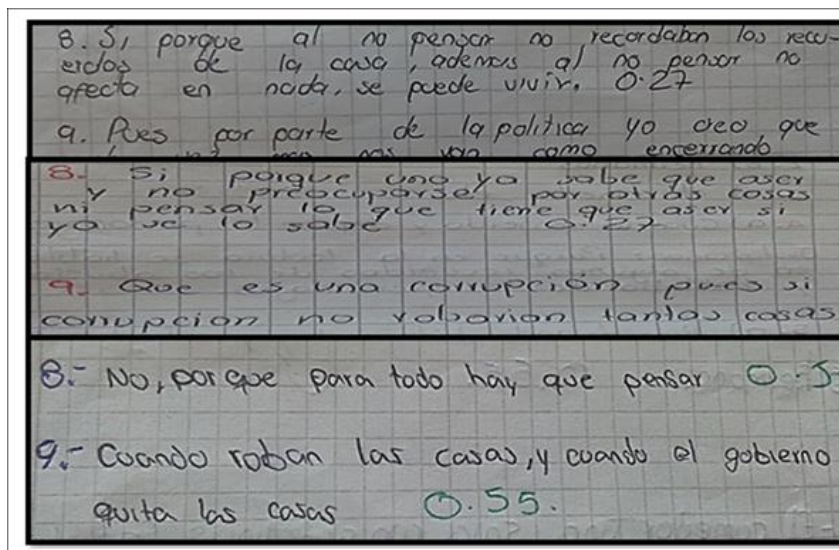 8. Si, porque al no pensar no recordaban los recu-
erdos de la casa, ademas al no pensar no
afecta en nada, se puede vivir. 0.27
9. Pues por parte de la politica yo creo que
como encerrando
8. Si porgue uno ya sabe que aser
y no preocuparse por otras cosas
ni pensar lo que tiene que aser si
ya se lo sabe 0.27
9. Que es una corrupción pues si
corrupcion no robarian tantas cosas
8.- No, porque para todo hay que pensar 0.5
9.- Cuando roban las casas, y cuando el gobierno
quita las casas 0.55.